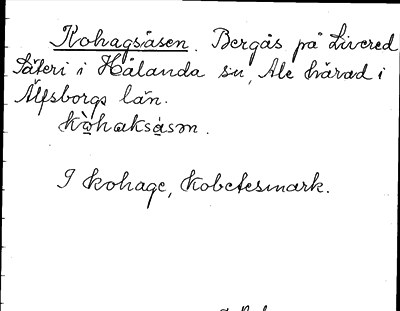 Kohagsåsen. Bergås på Livered
Säteri i Hålanda sn, Ale härad i
Älfsborgs län.
kò̤haksa̤sən.
I kohage, kobetesmark.